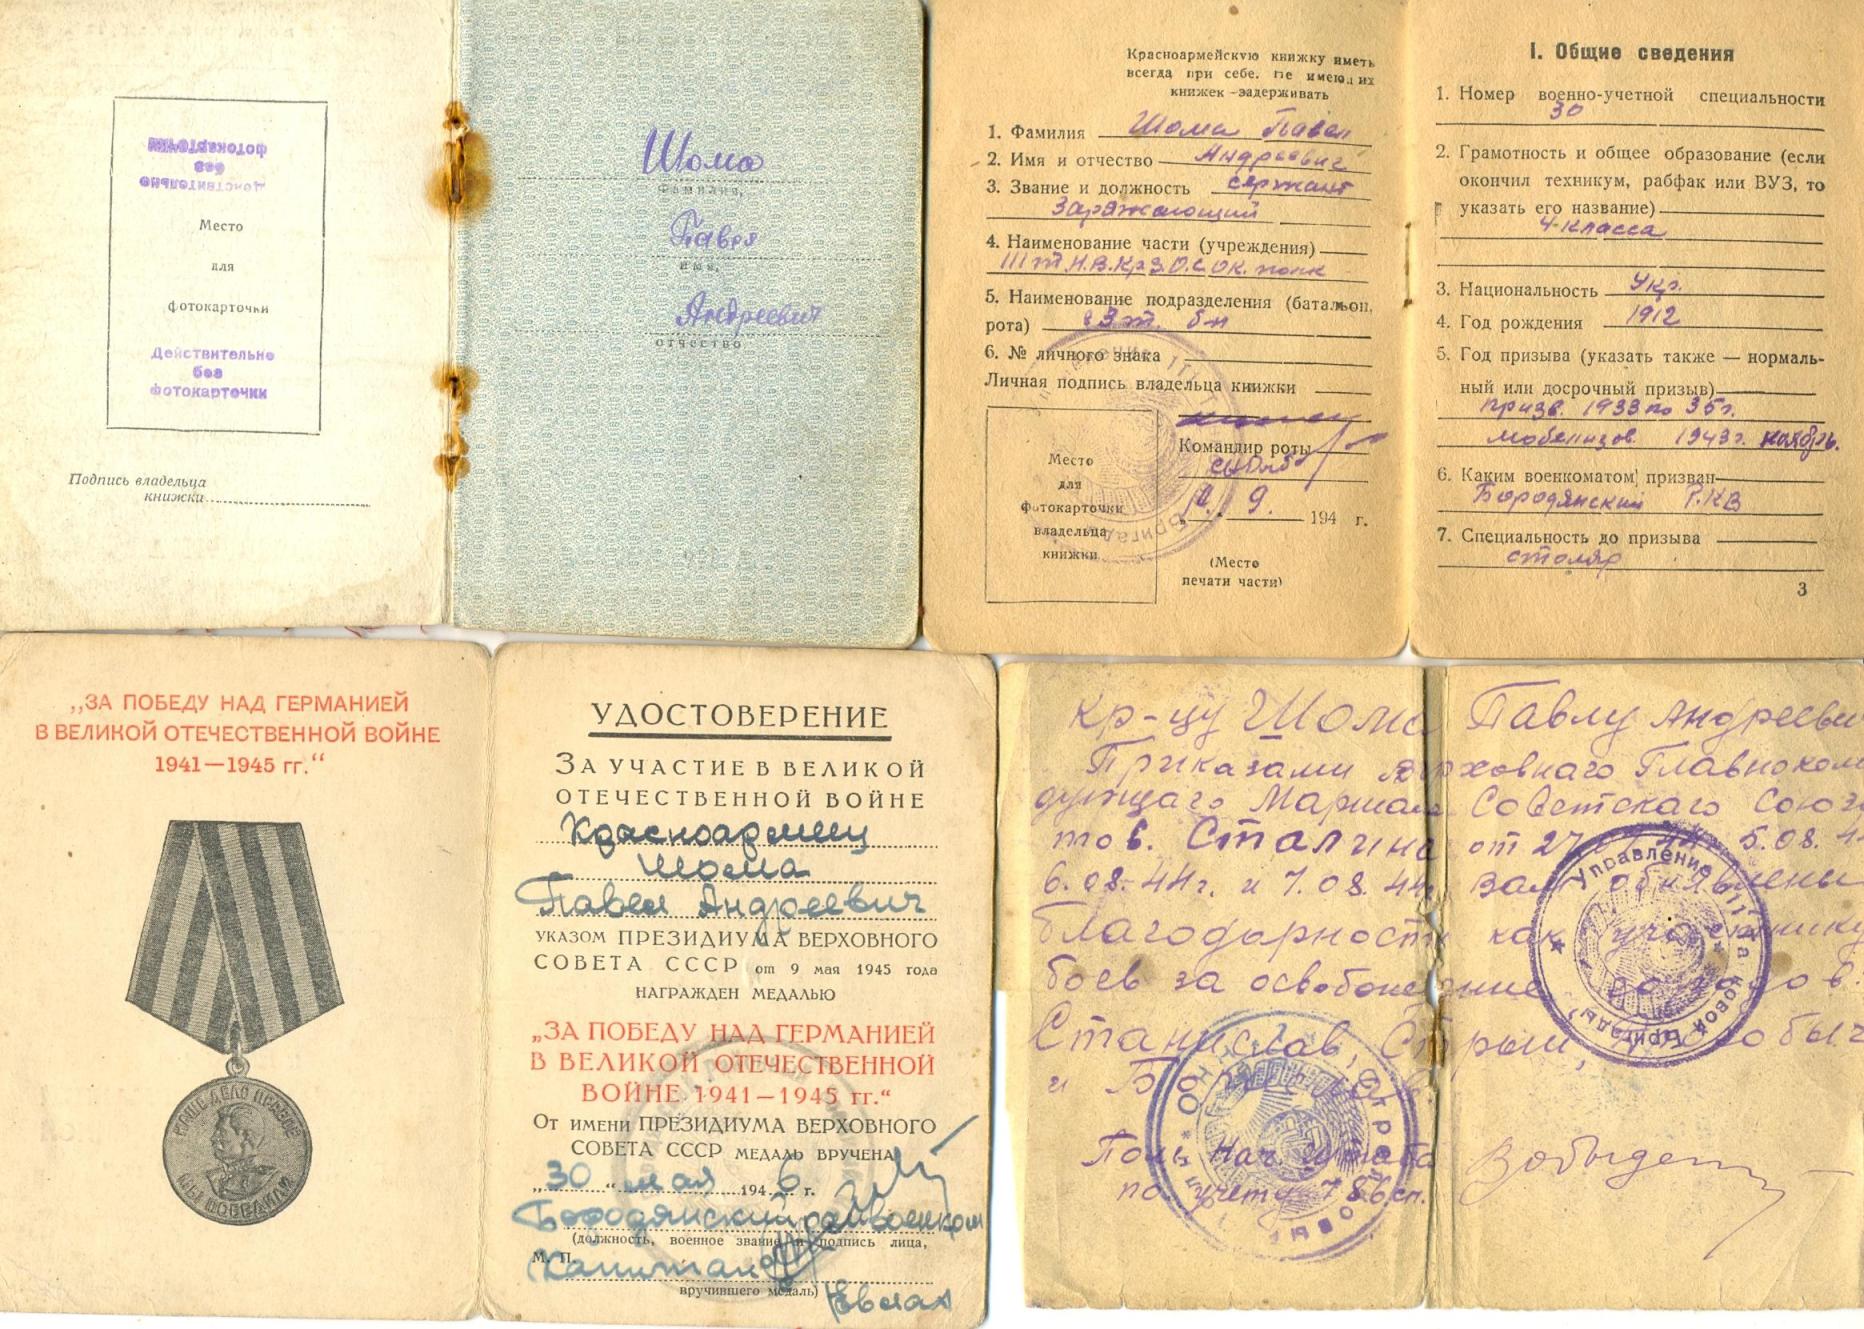 Действительно
без
фотокарточки
Место
для
фотокарточки
Действительно
без
фотокарточки
Подпись владельца
книжки
Шома
фамилия,
Павел
имя,
Андреевич
отчество
Красноармейскую книжку иметь
всегда при себе. Не имеющих
книжек - задерживать
1. Фамилия Шома Павел
2. Имя и отчество Андреевич
3. Звание и должность сержант
Заряжающий
4. Наименование части (учреждения)
5. Наименование подразделения (батальон,
рота) 3 т. б-н
6. № личного знака
Личная подпись владельца книжки
Командир роты
9. 194 г.
Место
для
фотокарточки
владельца
книжки
(Место
печати части)
I. Общие сведения
1. Номер военно-учетной специальности
30
2. Грамотность и общее образование (если
окончил техникум, рабфак или ВУЗ, то
указать его название)
4-класса
3. Национальность Укр.
4. Год рождения 1912
5. Год призыва (указать также — нормаль-
ный или досрочный призыв)
призв. 1933 по 35г.
мобелизов. 1943г. ноябрь.
6. Каким военкоматом призван
Бородянский Р.КВ
7. Специальность до призыва
столяр
3
„ЗА ПОБЕДУ НАД ГЕРМАНИЕЙ
В ВЕЛИКОЙ ОТЕЧЕСТВЕННОЙ ВОЙНЕ
1941—1945 гг.“
НАШЕ ДЕЛО ПРАВОЕ
МЫ ПОБЕДИЛИ
УДОСТОВЕРЕНИЕ
ЗА УЧАСТИЕ В ВЕЛИКОЙ
ОТЕЧЕСТВЕННОЙ ВОЙНЕ
Красноармеец
Шома
Павел Андреевич
УКАЗОМ ПРЕЗИДИУМА ВЕРХОВНОГО
СОВЕТА СССР от 9 мая 1945 года
НАГРАЖДЕН МЕДАЛЬЮ
„ЗА ПОБЕДУ НАД ГЕРМАНИЕЙ
В ВЕЛИКОЙ ОТЕЧЕСТВЕННОЙ
ВОЙНЕ 1941—1945 гг.“
От имени ПРЕЗИДИУМА ВЕРХОВНОГО
СОВЕТА СССР МЕДАЛЬ ВРУЧЕНА
„30“ мая 1946 г.
Бородянский райвоенком
(должность, военное звание и подпись лица,
М. П.
Капитан
вручившего медаль)
кр-цу Шома Павлу Андреевич
Приказами Верховнаго Главноком
дующаго Маршала Советскаго Союза
тов. Сталина от 27 5.08.4
6.08.44г. и 7.08.44г. вам объявлены
благодарности как участнику
боев за освобождение городов.
Станислав, Стрый, Дрогобыч
и Борислав.
Пом. Нач. Штаба
по учету 786 сп.
Управление
танковой Бригады